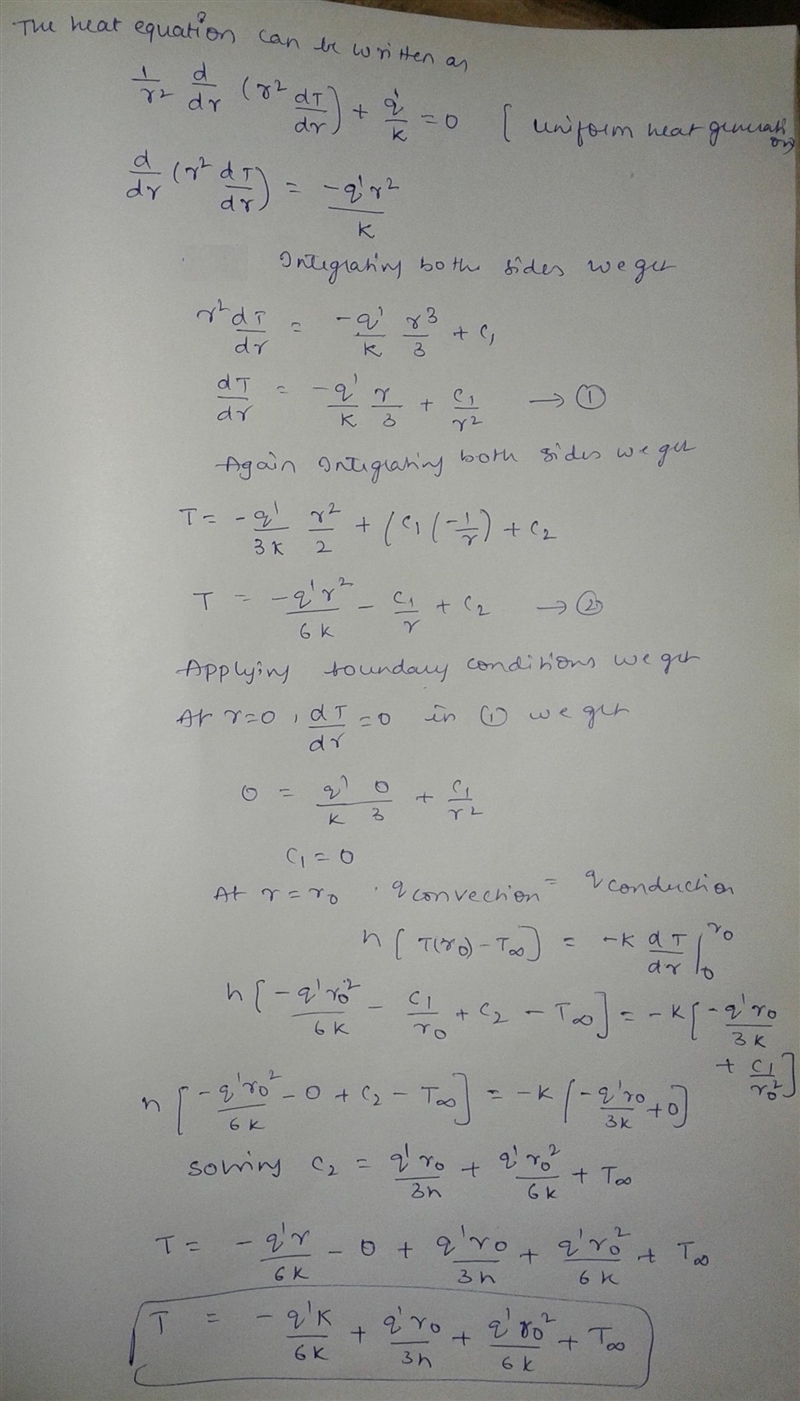 The heat equation can be written as
1/r² d/dr (r² dT/dr) + q'/k = 0 [uniform heat generation
d/dr (r² dT/dr) = -q'r²/k
Integrating both sides we get
r² dT/dr = -q'/k r³/3 + C₁
dT/dr = -q'/k r/3 + C₁/r² → ①
Again Integrating both sides we get
T = -q'/3k r²/2 + (C₁(-1/r) + C₂
T = -q'r²/6k - C₁/r + C₂ → ②
Applying boundary conditions we get
At r=0, dT/dr = 0 in ① we get
0 = q'/k 0/3 + C₁/r²
C₁ = 0
At r = r₀, q convection = q conduction
h[T(r₀) - T∞] = -k dT/dr |₀^r₀
h[-q'r₀²/6k - C₁/r₀ + C₂ - T∞] = -k[-q'r₀/3k + C₁/r₀²]
h[-q'r₀²/6k - 0 + C₂ - T∞] = -k[-q'r₀/3k + 0]
solving C₂ = q'r₀/3h + q'r₀²/6k + T∞
T = -q'r/6k - 0 + q'r₀/3h + q'r₀²/6k + T∞
T = -q'K/6k + q'r₀/3h + q'r₀²/6k + T∞